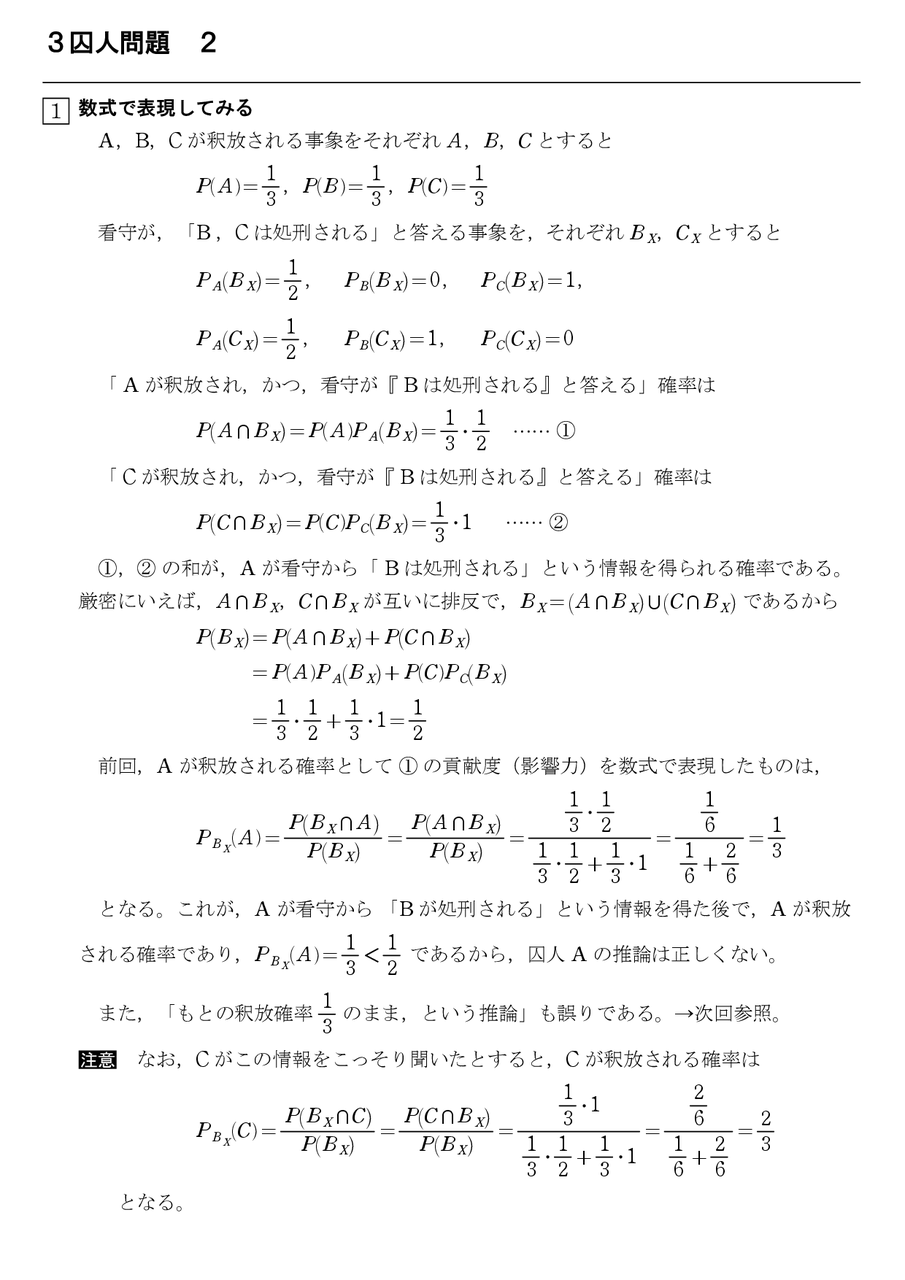 ３囚人問題　２
1 数式で表現してみる
A，B，C が釈放される事象をそれぞれ A，B，C とすると
P(A)=1/3，P(B)=1/3，P(C)=1/3
看守が，「B，C は処刑される」と答える事象を，それぞれ B_X，C_X とすると
P_A(B_X)=1/2，　P_B(B_X)=0，　P_C(B_X)=1，
P_A(C_X)=1/2，　P_B(C_X)=1，　P_C(C_X)=0
「A が釈放され，かつ，看守が『B は処刑される』と答える」確率は
P(A∩B_X)=P(A)P_A(B_X)=1/3・1/2　…… ①
「C が釈放され，かつ，看守が『B は処刑される』と答える」確率は
P(C∩B_X)=P(C)P_C(B_X)=1/3・1　…… ②
①，② の和が，A が看守から「B は処刑される」という情報を得られる確率である。
厳密にいえば，A∩B_X，C∩B_X が互いに排反で，B_X=(A∩B_X)∪(C∩B_X) であるから
P(B_X)=P(A∩B_X)+P(C∩B_X)
=P(A)P_A(B_X)+P(C)P_C(B_X)
=1/3・1/2+1/3・1=1/2
前回，A が釈放される確率として ① の貢献度（影響力）を数式で表現したものは，
P_{B_X}(A)=P(B_X∩A)/P(B_X)=P(A∩B_X)/P(B_X)=(1/3・1/2)/(1/3・1/2+1/3・1)=(1/6)/(1/6+2/6)=1/3
となる。これが，A が看守から 「B が処刑される」という情報を得た後で，A が釈放
される確率であり，P_{B_X}(A)=1/3<1/2 であるから，囚人 A の推論は正しくない。
また，「もとの釈放確率 1/3 のまま，という推論」も誤りである。→次回参照。
注意　なお，C がこの情報をこっそり聞いたとすると，C が釈放される確率は
P_{B_X}(C)=P(B_X∩C)/P(B_X)=P(C∩B_X)/P(B_X)=(1/3・1)/(1/3・1/2+1/3・1)=(2/6)/(1/6+2/6)=2/3
となる。